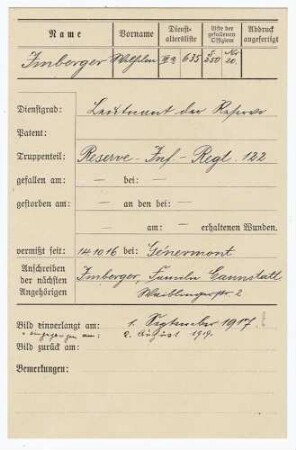 Name Vorname Dienst-altersliste Liste der gefallenen Offiziere Abdruck angefertigt
Imberger Wilhelm 635 S. 350 No 20.
Dienstgrad: Leutnant der Reserve
Patent:
Truppenteil: Reserve-Inf-Regt. 122
gefallen am: — bei: —
gestorben am: — an den bei: —
— am: — erhaltenen Wunden.
vermißt seit: 14.10.16 bei: Génermont
Anschreiben der nächsten Angehörigen
Imberger, Familie Cannstatt
Waiblingerstr. 2
Bild einverlangt am: 1. September 1917.
" eingegangen am: 2. August 1919.
Bild zurück am:
Bemerkungen: